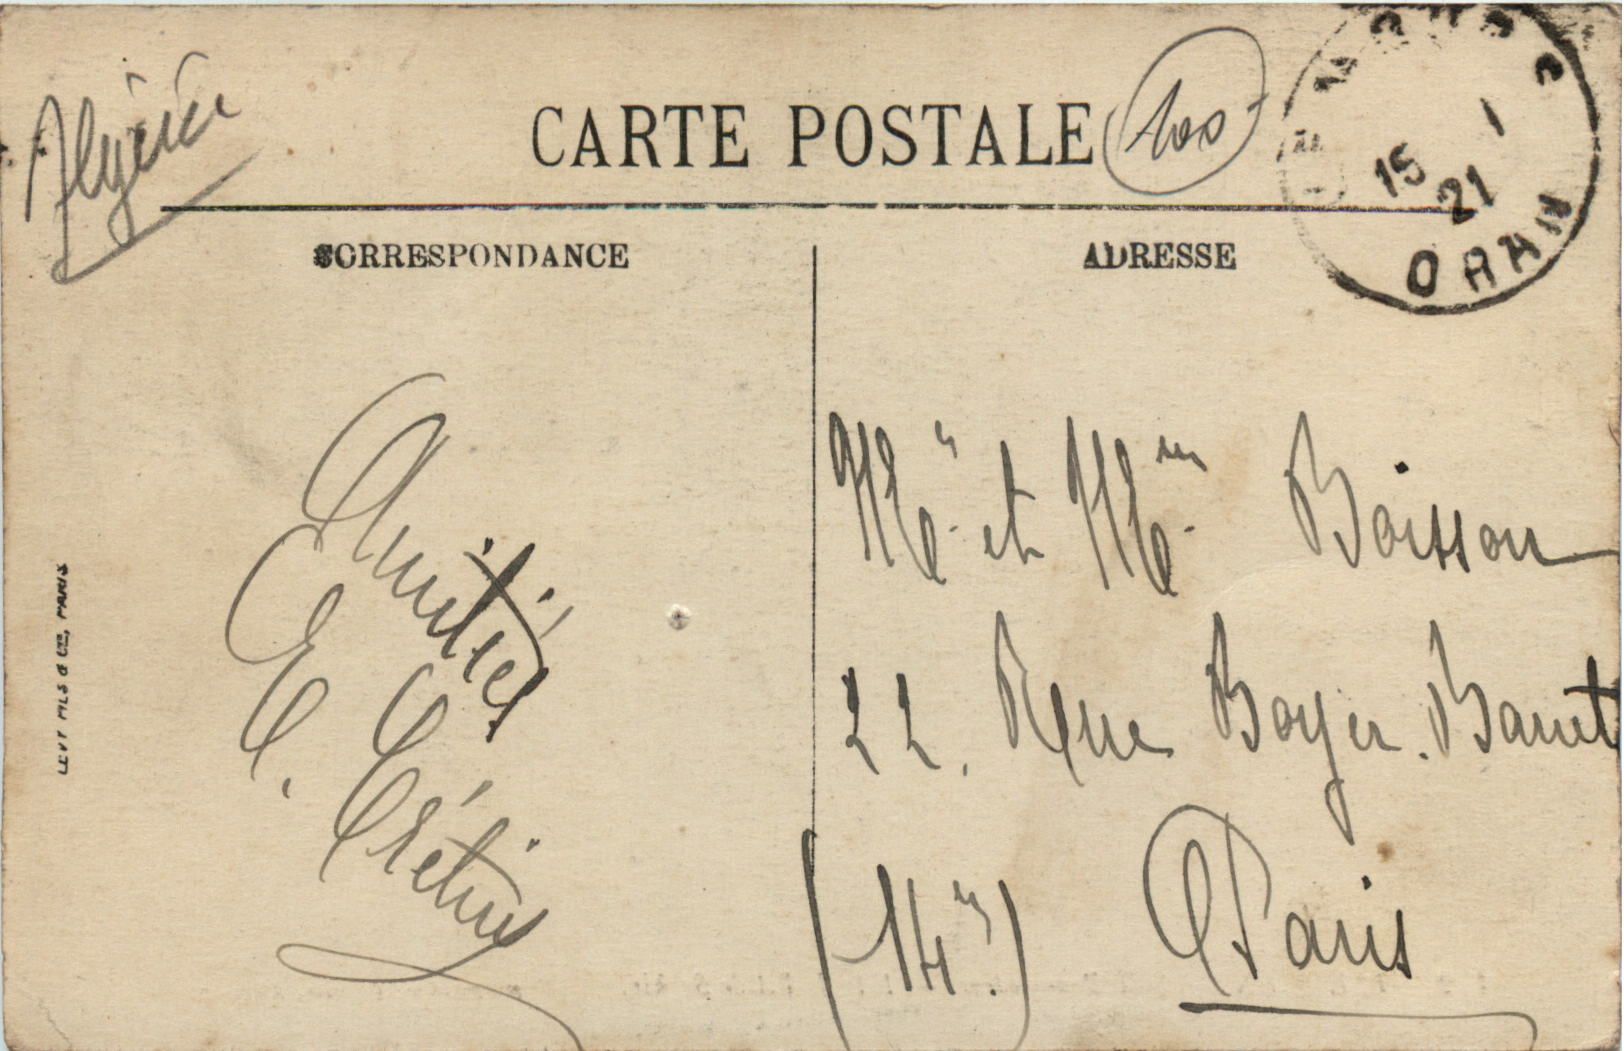 Algérie
CARTE POSTALE
100
15 1
21
ORAN
CORRESPONDANCE
ADRESSE
Amitiés
E. Crétin
Mr. et Mme. Boisson
22, Rue Boyer. Barret
(14e.) Paris
LEVY FILS & Cie, PARIS